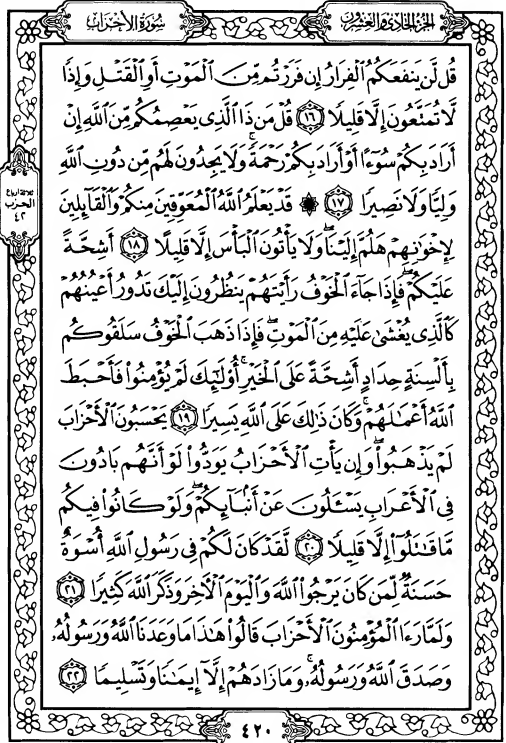 الجزء الحادي والعشرون
سورة الأحزاب
قُل لَّن يَنفَعَكُمُ ٱلْفِرَارُ إِن فَرَرْتُم مِّنَ ٱلْمَوْتِ أَوِ ٱلْقَتْلِ وَإِذًا
لَّا تُمَتَّعُونَ إِلَّا قَلِيلًا ١٦ قُلْ مَن ذَا ٱلَّذِى يَعْصِمُكُم مِّنَ ٱللَّهِ إِنْ
أَرَادَ بِكُمْ سُوٓءًا أَوْ أَرَادَ بِكُمْ رَحْمَةً ۚ وَلَا يَجِدُونَ لَهُم مِّن دُونِ ٱللَّهِ
وَلِيًّا وَلَا نَصِيرًا ١٧ ۞ قَدْ يَعْلَمُ ٱللَّهُ ٱلْمُعَوِّقِينَ مِنكُمْ وَٱلْقَآئِلِينَ
لِإِخْوَٰنِهِمْ هَلُمَّ إِلَيْنَا ۖ وَلَا يَأْتُونَ ٱلْبَأْسَ إِلَّا قَلِيلًا ١٨ أَشِحَّةً
عَلَيْكُمْ ۖ فَإِذَا جَآءَ ٱلْخَوْفُ رَأَيْتَهُمْ يَنظُرُونَ إِلَيْكَ تَدُورُ أَعْيُنُهُمْ
كَٱلَّذِى يُغْشَىٰ عَلَيْهِ مِنَ ٱلْمَوْتِ ۖ فَإِذَا ذَهَبَ ٱلْخَوْفُ سَلَقُوكُم
بِأَلْسِنَةٍ حِدَادٍ أَشِحَّةً عَلَى ٱلْخَيْرِ ۚ أُو۟لَٰٓئِكَ لَمْ يُؤْمِنُوا۟ فَأَحْبَطَ
ٱللَّهُ أَعْمَٰلَهُمْ ۚ وَكَانَ ذَٰلِكَ عَلَى ٱللَّهِ يَسِيرًا ١٩ يَحْسَبُونَ ٱلْأَحْزَابَ
لَمْ يَذْهَبُوا۟ ۖ وَإِن يَأْتِ ٱلْأَحْزَابُ يَوَدُّوا۟ لَوْ أَنَّهُم بَادُونَ
فِى ٱلْأَعْرَابِ يَسْـَٔلُونَ عَنْ أَنۢبَآئِكُمْ ۖ وَلَوْ كَانُوا۟ فِيكُم
مَّا قَٰتَلُوٓا۟ إِلَّا قَلِيلًا ٢٠ لَّقَدْ كَانَ لَكُمْ فِى رَسُولِ ٱللَّهِ أُسْوَةٌ
حَسَنَةٌ لِّمَن كَانَ يَرْجُوا۟ ٱللَّهَ وَٱلْيَوْمَ ٱلْأَخِرَ وَذَكَرَ ٱللَّهَ كَثِيرًا ٢١
وَلَمَّا رَءَا ٱلْمُؤْمِنُونَ ٱلْأَحْزَابَ قَالُوا۟ هَٰذَا مَا وَعَدَنَا ٱللَّهُ وَرَسُولُهُۥ
وَصَدَقَ ٱللَّهُ وَرَسُولُهُۥ ۚ وَمَا زَادَهُمْ إِلَّآ إِيمَٰنًا وَتَسْلِيمًا ٢٢
ثلاثة أرباع
الحزب
٤٢
٤٢٠